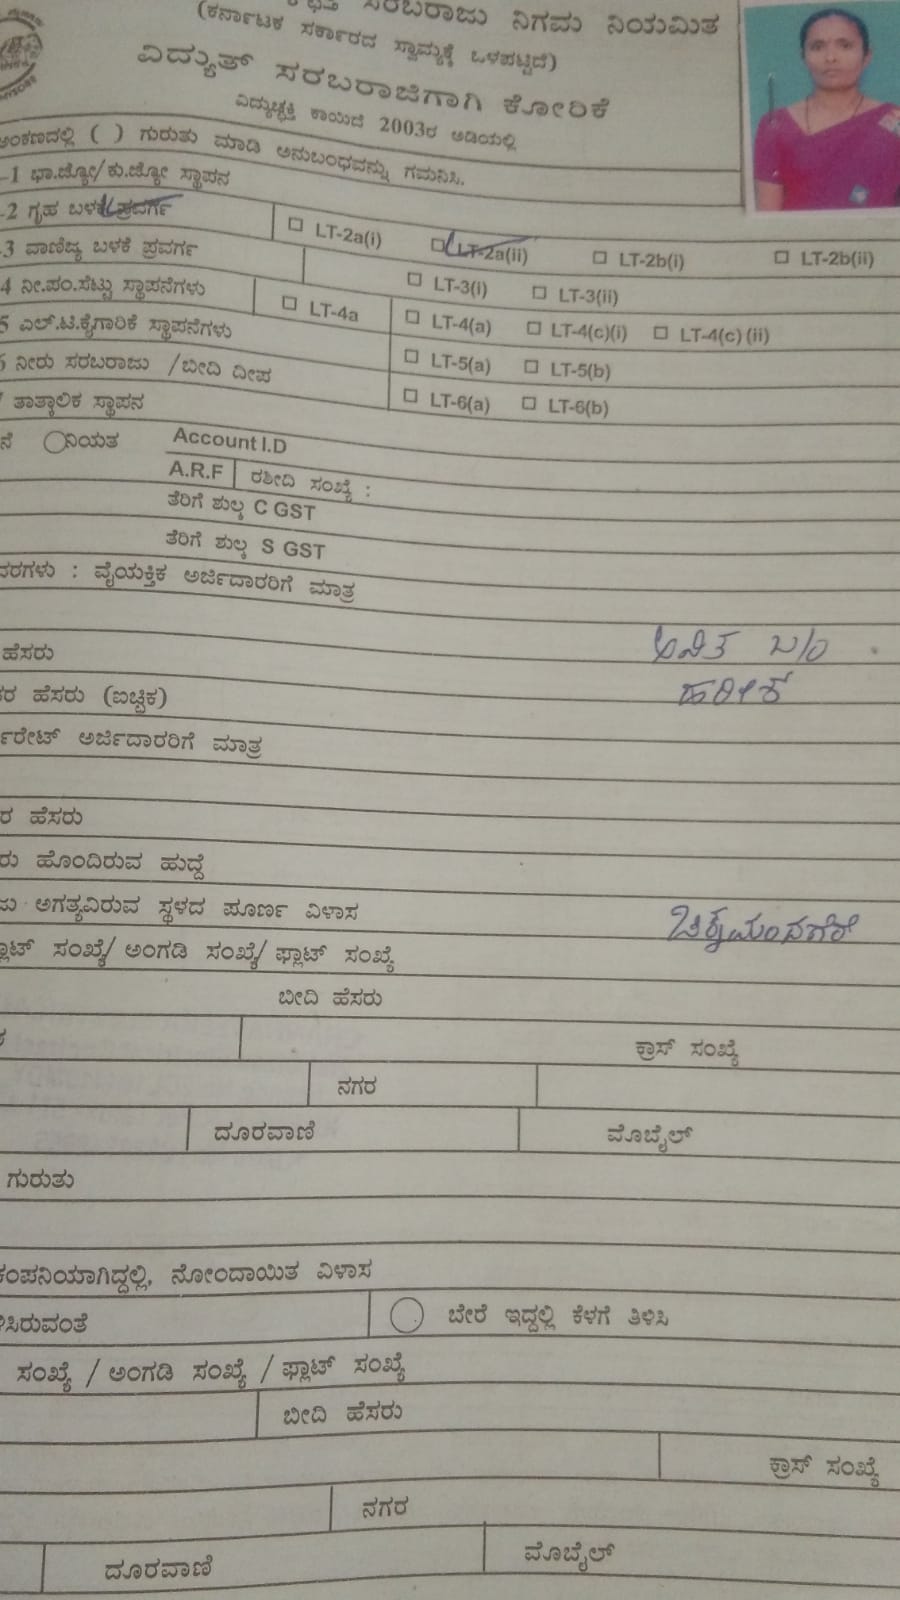 ಸರಬರಾಜು ನಿಗಮ ನಿಯಮಿತ
(ಕರ್ನಾಟಕ ಸರ್ಕಾರದ ಸ್ವಾಮ್ಯಕ್ಕೆ ಒಳಪಟ್ಟಿದೆ)
ವಿದ್ಯುತ್ ಸರಬರಾಜಿಗಾಗಿ ಕೋರಿಕೆ
ವಿದ್ಯುಚ್ಛಕ್ತಿ ಕಾಯಿದೆ 2003ರ ಅಡಿಯಲ್ಲಿ
ಅಂಕಣದಲ್ಲಿ ( ) ಗುರುತು ಮಾಡಿ ಅನುಬಂಧವನ್ನು ಗಮನಿಸಿ.
-1 ಭಾ.ಜ್ಯೋ/ ಕು.ಜ್ಯೋ ಸ್ಥಾಪನ
-2 ಗೃಹ ಬಳಕೆ ಪ್ರವರ್ಗ LT-2a(i) LT-2a(ii) LT-2b(i) LT-2b(ii)
-3 ವಾಣಿಜ್ಯ ಬಳಕೆ ಪ್ರವರ್ಗ LT-3(i) LT-3(ii)
4 ನೀ.ಪಂ.ಸೆಟ್ಟು ಸ್ಥಾಪನೆಗಳು LT-4a LT-4(a) LT-4(c)(i) LT-4(c) (ii)
5 ಎಲ್.ಟಿ.ಕೈಗಾರಿಕೆ ಸ್ಥಾಪನೆಗಳು LT-5(a) LT-5(b)
6 ನೀರು ಸರಬರಾಜು /ಬೀದಿ ದೀಪ LT-6(a) LT-6(b)
7 ತಾತ್ಕಾಲಿಕ ಸ್ಥಾಪನ
ನಿಯತ Account I.D
A.R.F ರಶೀದಿ ಸಂಖ್ಯೆ :
ತೆರಿಗೆ ಶುಲ್ಕ C GST
ತೆರಿಗೆ ಶುಲ್ಕ S GST
ವರಗಳು : ವೈಯಕ್ತಿಕ ಅರ್ಜಿದಾರರಿಗೆ ಮಾತ್ರ
ಹೆಸರು ಅನಿತ
ರ ಹೆಸರು (ಐಚ್ಛಿಕ) ಹರೀಶ
ರೇಟ್ ಅರ್ಜಿದಾರರಿಗೆ ಮಾತ್ರ
ರ ಹೆಸರು
ರು ಹೊಂದಿರುವ ಹುದ್ದೆ
ಜು ಅಗತ್ಯವಿರುವ ಸ್ಥಳದ ಪೂರ್ಣ ವಿಳಾಸ
ಪ್ಲಾಟ್ ಸಂಖ್ಯೆ/ ಅಂಗಡಿ ಸಂಖ್ಯೆ/ ಫ್ಲಾಟ್ ಸಂಖ್ಯೆ
ಬೀದಿ ಹೆಸರು
ಕ್ರಾಸ್ ಸಂಖ್ಯೆ
ನಗರ
ದೂರವಾಣಿ ಮೊಬೈಲ್
ಗುರುತು
ಕಂಪನಿಯಾಗಿದ್ದಲ್ಲಿ, ನೋಂದಾಯಿತ ವಿಳಾಸ
ಸಿರುವಂತೆ ಬೇರೆ ಇದ್ದಲ್ಲಿ ಕೆಳಗೆ ತಿಳಿಸಿ
ಸಂಖ್ಯೆ / ಅಂಗಡಿ ಸಂಖ್ಯೆ / ಫ್ಲಾಟ್ ಸಂಖ್ಯೆ
ಬೀದಿ ಹೆಸರು
ಕ್ರಾಸ್ ಸಂಖ್ಯೆ
ನಗರ
ದೂರವಾಣಿ ಮೊಬೈಲ್